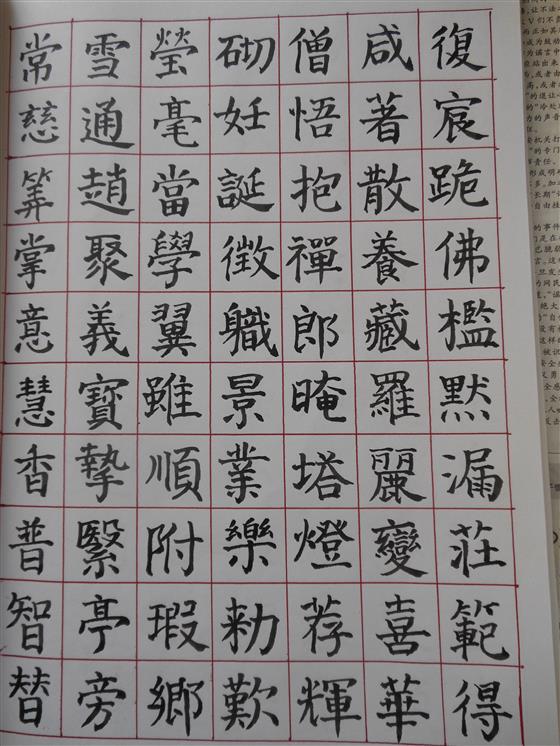 復宸跪佛檻默漏莊範得
咸著散養藏羅麗變喜華
僧悟抱禪郎晻塔燈荐輝
砌妊誕徵職景業樂勑歎
瑩毫當學翼雖順附瑕鄉
雪通趙聚義寶摯繄亭旁
常慈筭掌意慧香普智替